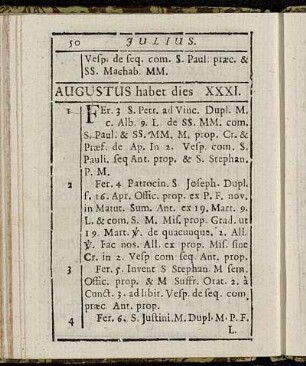 50 JULIUS.
Vesp. de seq. com. S. Paul. præc. &
SS. Machab. MM.
AUGUSTUS habet dies XXXI.
1 FEr. 3 S. Petr. ad Vinc. Dupl. M.
c. Alb. 9. L. de SS. MM. com.
S. Paul. & SS. MM. M. prop. Cr. &
Præf. de Ap. In 2. Vesp. com. S.
Pauli. seq Ant. prop. & S. Stephan,
P. M.
2 Fer. 4 Patrocin. S Joseph. Dupl.
f. 16. Apr. Offic. prop. ex P. F. nov.
in Matut. Sum. Ant. ex 19. Mart. 9.
L. & com. S. M. Mis. prop. Grad. ut
19 Mart. ℣. de quacunque. 2. All.
℣. Fac nos. All. ex prop. Mis. sine
Cr. in 2. Vesp com seq. Ant. prop.
3 Fer. 5. Invent S Stephan. M sem.
Offic. prop. & M Suffr. Orat. 2. à
Cunct. 3. ad libit. Vesp. de seq. com
præc Ant. prop.
4 Fer. 6. S. Justini. M. Dupl. M. P. F.
L.